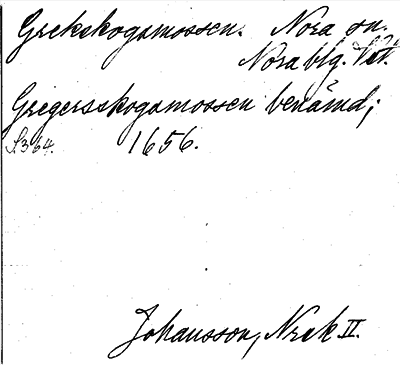 Grekskogamossen. Nora sn.
Nora blg. Vstm.
Gregersskogamossen benämd;
S. 364. 1656.
Johansson, Nrek II.